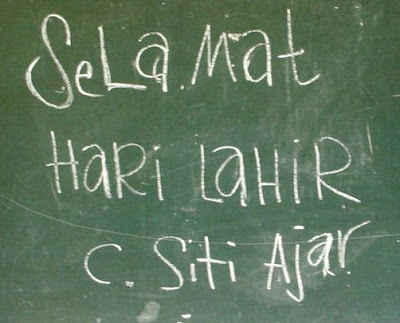 SeLa.Mat
HaRi LaHiR
C. Siti Ajar